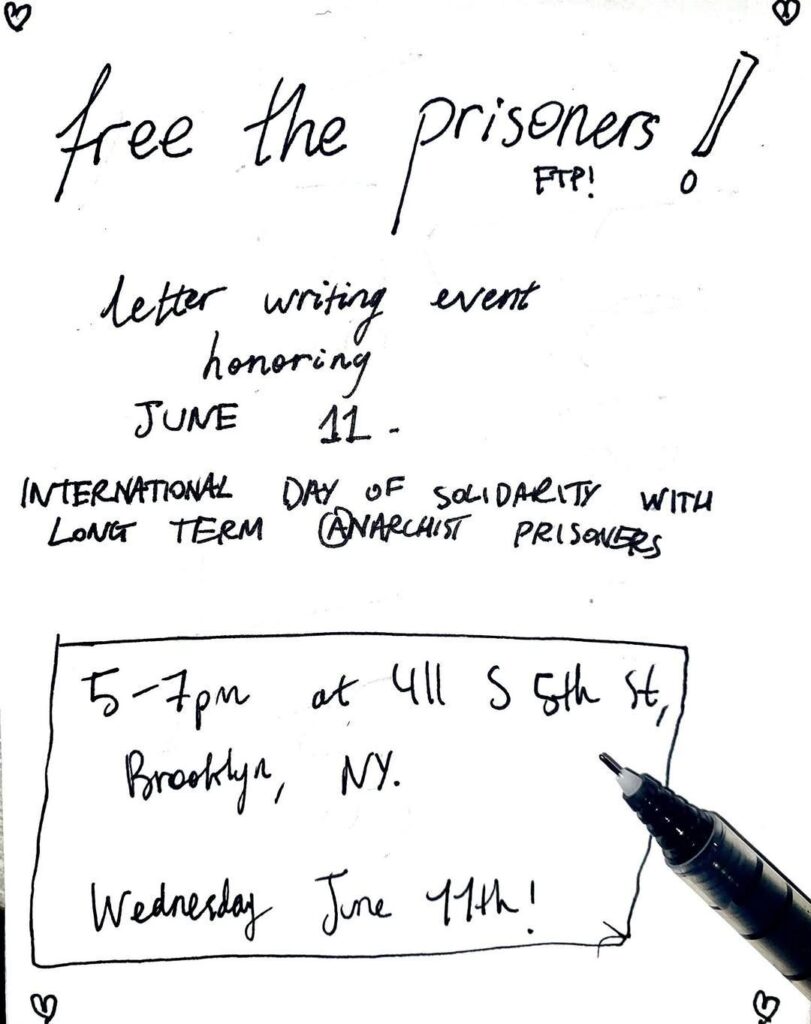 free the prisoners!
FTP!
letter writing event
honoring
JUNE 11.
INTERNATIONAL DAY OF SOLIDARITY WITH
LONG TERM ANARCHIST PRISONERS
5-7pm at 411 S 5th St,
Brooklyn, NY.
Wednesday June 11th!